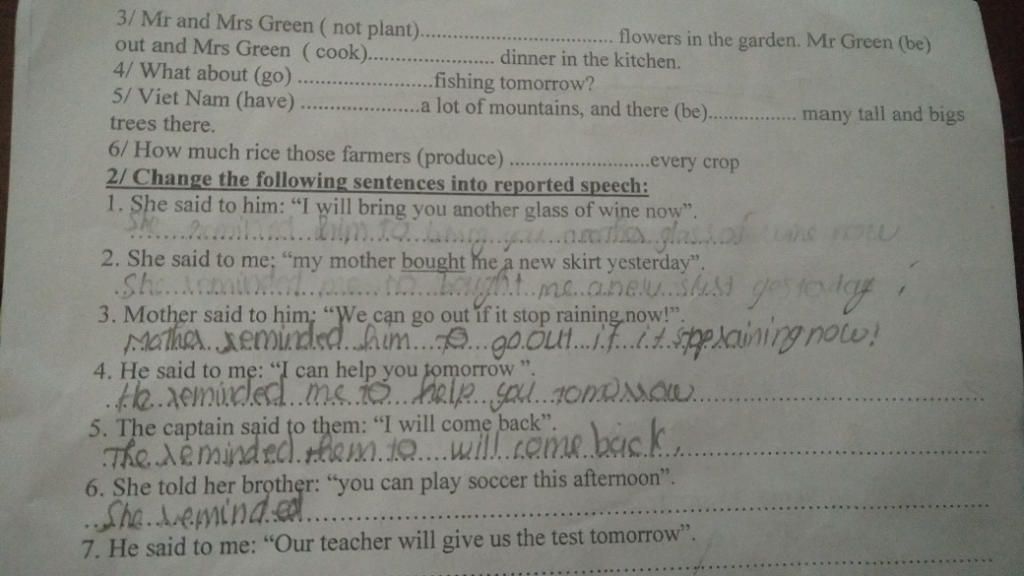 3/ Mr and Mrs Green ( not plant)................................. flowers in the garden. Mr Green (be)
out and Mrs Green ( cook)...................... dinner in the kitchen.
4/ What about (go) .......................fishing tomorrow?
5/ Viet Nam (have) ....................a lot of mountains, and there (be)................ many tall and bigs
trees there.
6/ How much rice those farmers (produce) .........................every crop
2/ Change the following sentences into reported speech:
1. She said to him: “I will bring you another glass of wine now”.
She reminded him to bring you another glass of wine now
2. She said to me: “my mother bought me a new skirt yesterday”.
She reminded me to bought me a new skist yesterday
3. Mother said to him: “We can go out if it stop raining now!”.
Mother reminded him to go out if it stop raining now!
4. He said to me: “I can help you tomorrow ”.
He reminded me to help you tomorrow
5. The captain said to them: “I will come back”.
The reminded them to will come back.
6. She told her brother: “you can play soccer this afternoon”.
She reminded
7. He said to me: “Our teacher will give us the test tomorrow”.